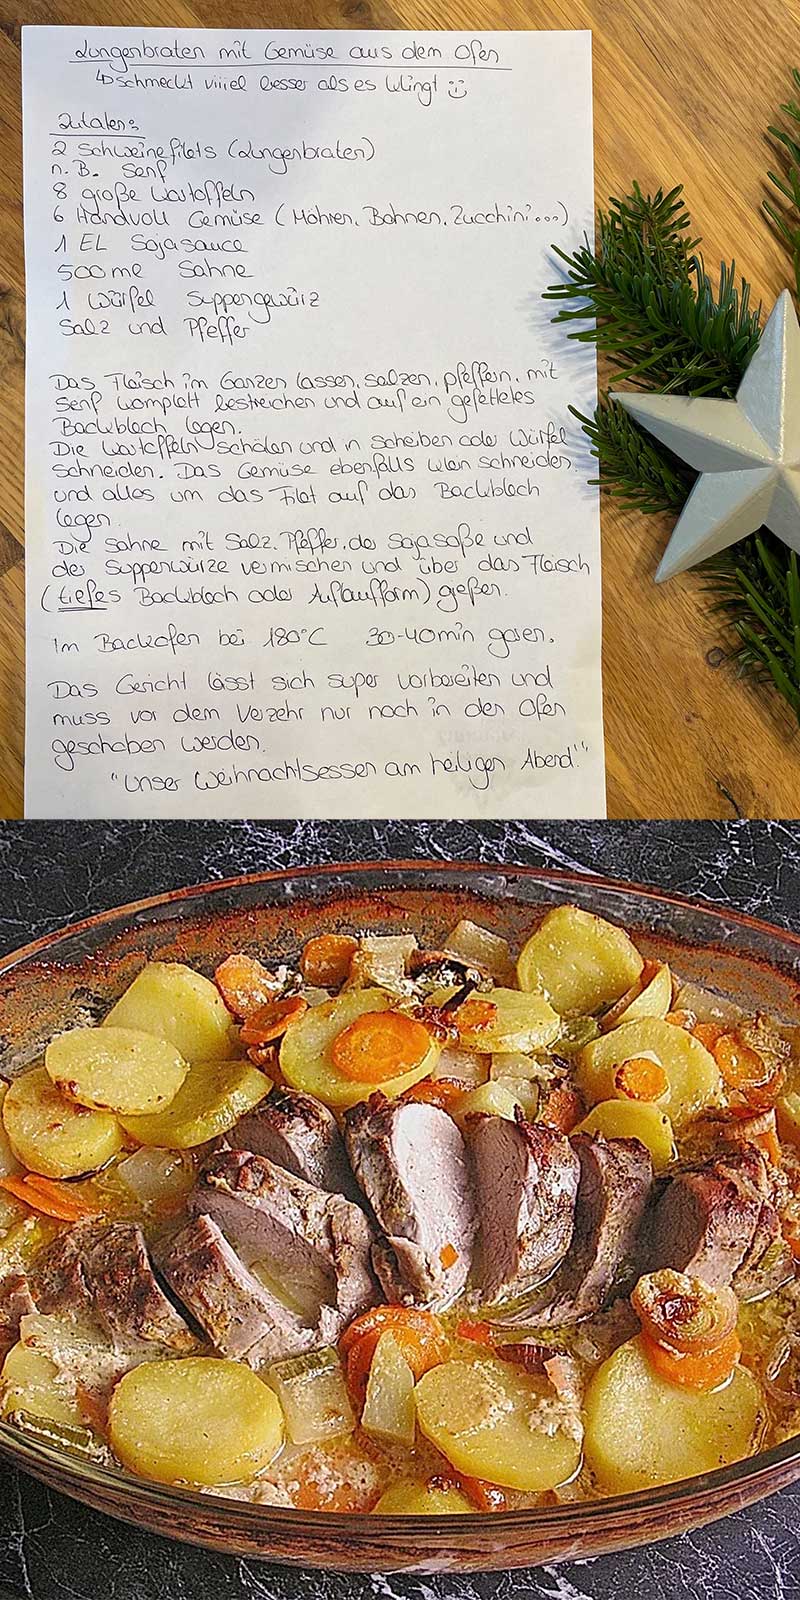 Lungenbraten mit Gemüse aus dem Ofen
↳ schmeckt viiiel besser als es klingt :)
Zutaten:
2 Schweinefilets (Lungenbraten)
n.B. Senf
8 große Kartoffeln
6 Handvoll Gemüse (Möhren, Bohnen, Zucchini...)
1 EL Sojasauce
500 ml Sahne
1 Würfel Suppengewürz
Salz und Pfeffer
Das Fleisch im Ganzen lassen, salzen, pfeffern, mit
Senf komplett bestreichen und auf ein gefettetes
Backblech legen.
Die Kartoffeln schälen und in Scheiben oder Würfel
schneiden. Das Gemüse ebenfalls klein schneiden
und alles um das Filet auf das Backblech
legen.
Die Sahne mit Salz, Pfeffer, der Sojasoße und
der Suppenwürze vermischen und über das Fleisch
(tiefes Backblech oder Auflaufform) gießen.
Im Backofen bei 180°C 30-40min garen.
Das Gericht lässt sich super vorbereiten und
muss vor dem Verzehr nur noch in den Ofen
geschoben werden.
"Unser Weihnachtsessen am heiligen Abend!"